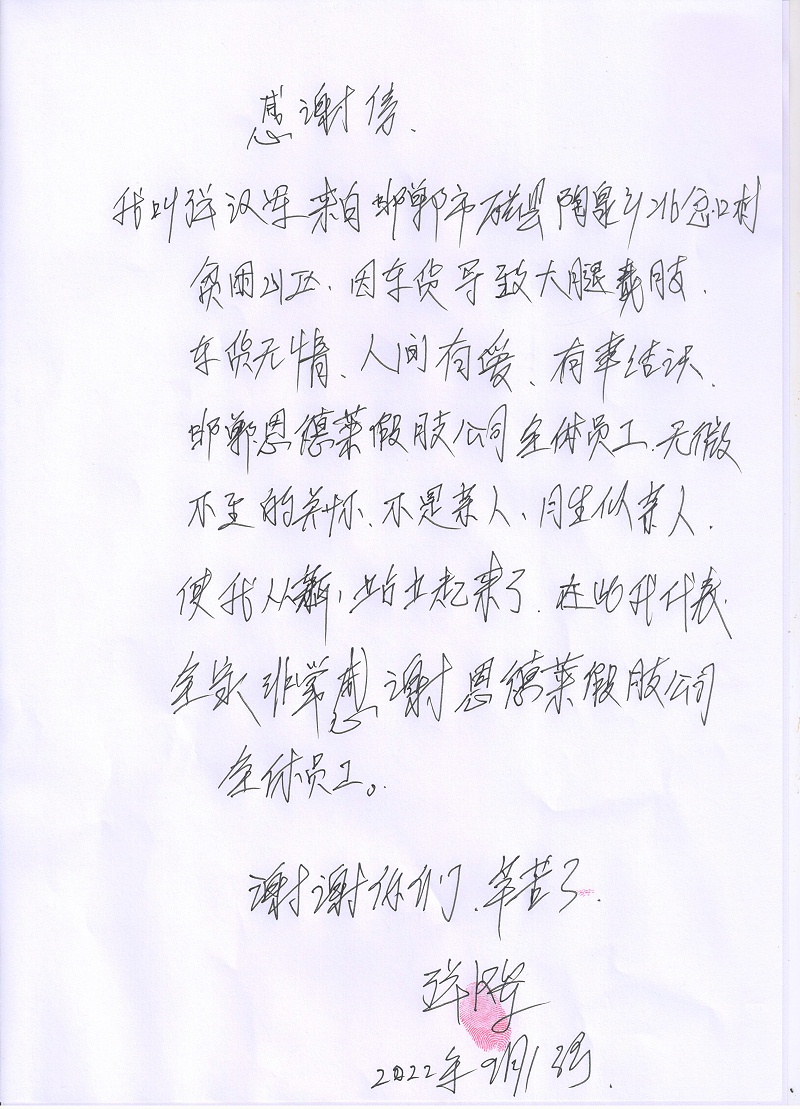 感谢信.
我叫张汉军来自邯郸市磁县陶泉乡北岔口村
贫困山区.因车货导致大腿截肢.
车货无情、人间有爱、有幸结识、
邯郸恩德莱假肢公司全体员工.无微
不至的关怀、不是亲人、月生似亲人.
使我从新,站立起来了.在此我代表.
全家非常感谢恩德莱假肢公司
全体员工。
谢谢你们.辛苦了.
2022年9月13号.